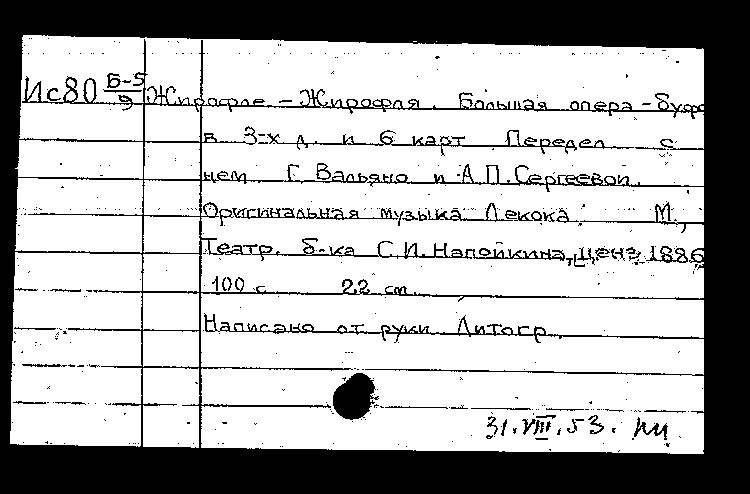 Ис80 Б-5/9 Жирофле – Жирофля. Большая опера – буфф
в 3-х д. и 6 карт Передел с
нем Г. Вальяно и А.П. Сергеевой.
Оригинальная музыка Лекока. М.,
Театр. б-ка С.И. Напойкина, ценз. 1886
100 с 22 см.
Написано от руки Литогр.
31.VIII.53.